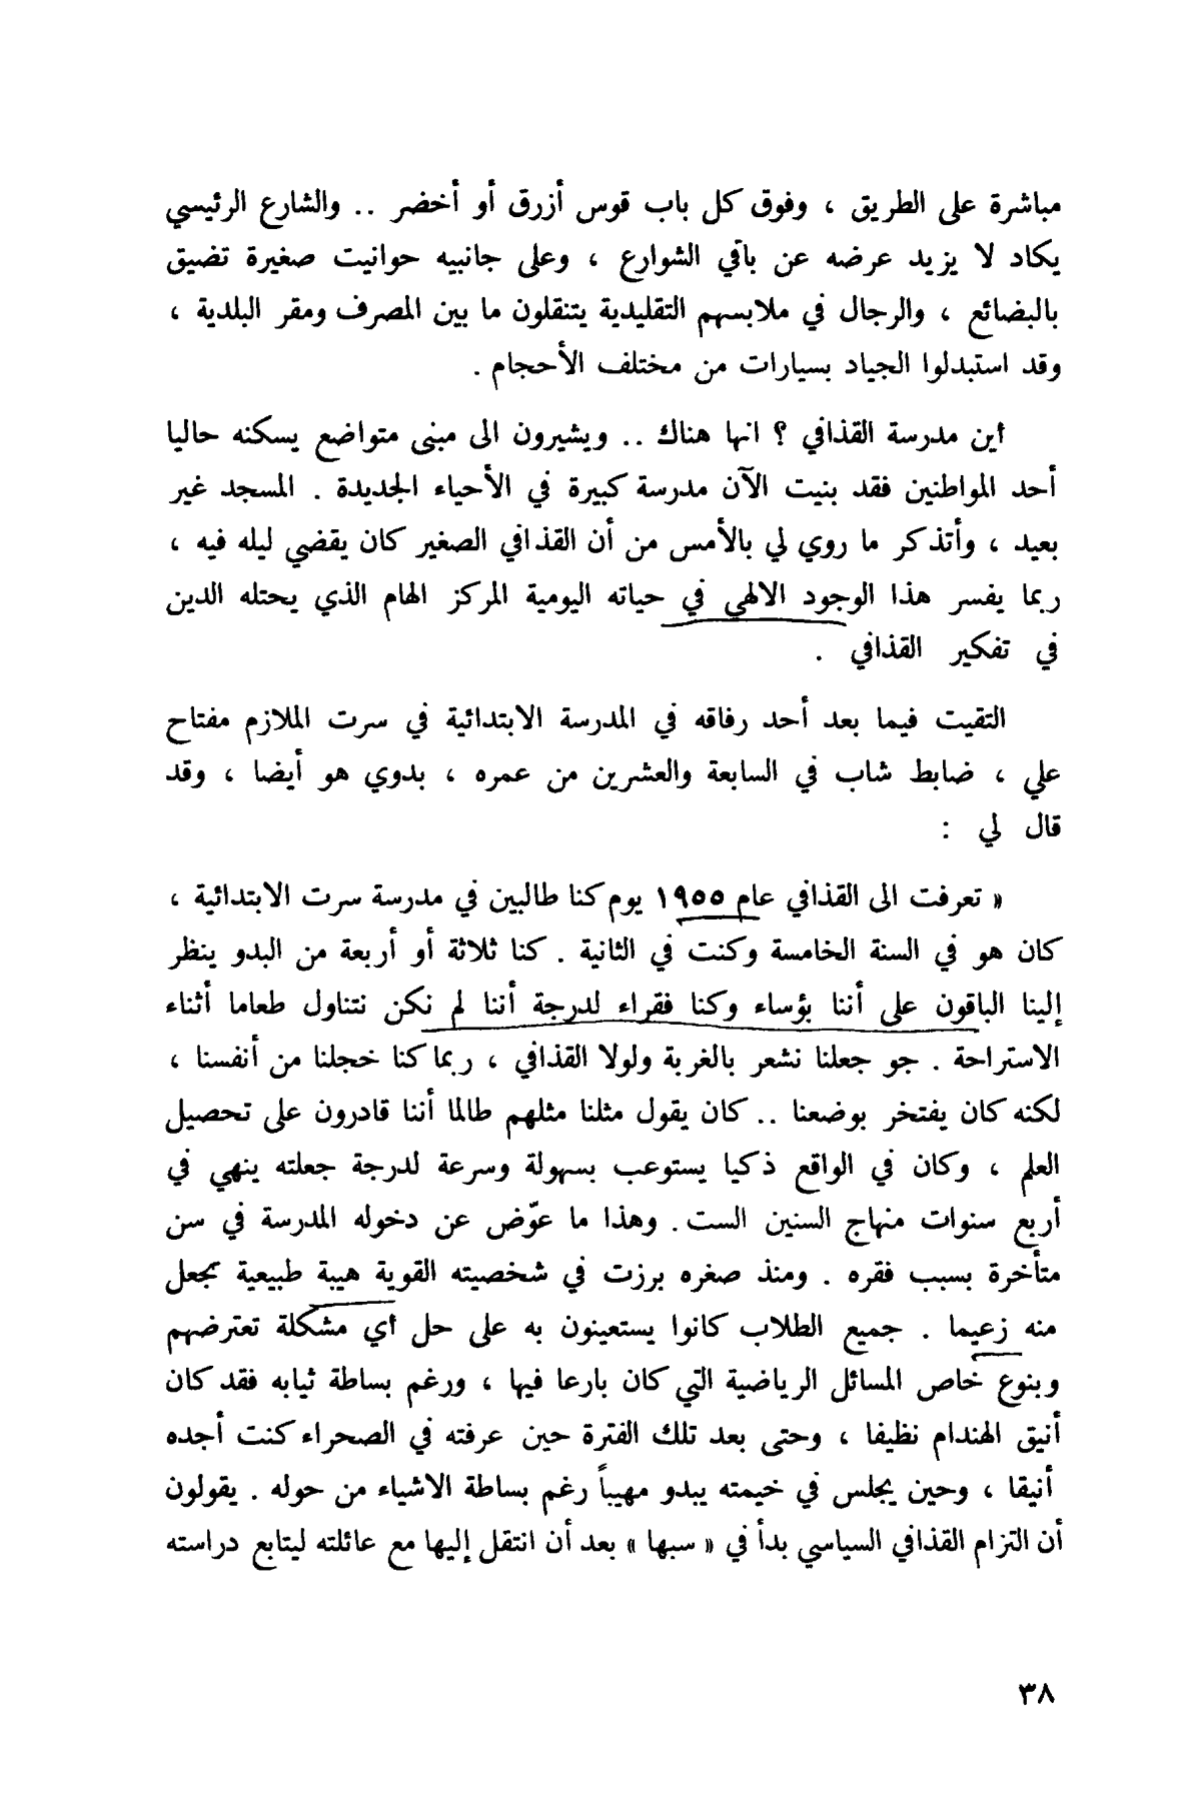 مباشرة على الطريق ، وفوق كل باب قوس أزرق أو أخضر .. والشارع الرئيسي
يكاد لا يزيد عرضه عن باقي الشوارع ، وعلى جانبيه حوانيت صغيرة تضيق
بالبضائع ، والرجال في ملابسهم التقليدية يتنقلون ما بين المصرف ومقر البلدية ،
وقد استبدلوا الجياد بسيارات من مختلف الأحجام .
أين مدرسة القذافي ؟ انها هناك .. ويشيرون الى مبنى متواضع يسكنه حاليا
أحد المواطنين فقد بنيت الآن مدرسة كبيرة في الأحياء الجديدة . المسجد غير
بعيد ، وأتذكر ما روي لي بالأمس من أن القذافي الصغير كان يقضي ليله فيه ،
ربما يفسر هذا الوجود الالهي في حياته اليومية المركز الهام الذي يحتله الدين
في تفكير القذافي .
التقيت فيما بعد أحد رفاقه في المدرسة الابتدائية في سرت الملازم مفتاح
علي ، ضابط شاب في السابعة والعشرين من عمره ، بدوي هو أيضا ، وقد
قال لي :
« تعرفت الى القذافي عام ١٩٥٥ يوم كنا طالبين في مدرسة سرت الابتدائية ،
كان هو في السنة الخامسة وكنت في الثانية . كنا ثلاثة أو أربعة من البدو ينظر
إلينا الباقون على أننا بؤساء وكنا فقراء لدرجة أننا لم نكن نتناول طعاما أثناء
الاستراحة . جو جعلنا نشعر بالغربة ولولا القذافي ، ربما كنا خجلنا من أنفسنا ،
لكنه كان يفتخر بوضعنا .. كان يقول مثلنا مثلهم طالما أننا قادرون على تحصيل
العلم ، وكان في الواقع ذكيا يستوعب بسهولة وسرعة لدرجة جعلته ينهي في
أربع سنوات منهاج السنين الست . وهذا ما عوّض عن دخوله المدرسة في سن
متأخرة بسبب فقره . ومنذ صغره برزت في شخصيته القوية هيبة طبيعية تجعل
منه زعيما . جميع الطلاب كانوا يستعينون به على حل أي مشكلة تعترضهم
وبنوع خاص المسائل الرياضية التي كان بارعا فيها ، ورغم بساطة ثيابه فقد كان
أنيق الهندام نظيفا ، وحتى بعد تلك الفترة حين عرفته في الصحراء كنت أجده
أنيقا ، وحين يجلس في خيمته يبدو مهيباً رغم بساطة الاشياء من حوله . يقولون
أن التزام القذافي السياسي بدأ في « سبها » بعد أن انتقل إليها مع عائلته ليتابع دراسته
٣٨